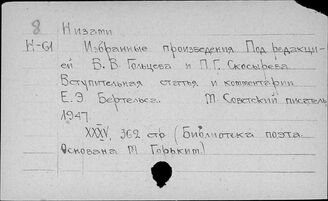 8 Низами
И-61 Избранные произведения Под редакци-
ей В.В Гольцева и П.Г. Скосырева
Вступительная статья и комментарии
Е.Э Бертельса. М. Советский писатель
1947
XXXV, 362 стр (Библиотека поэта
Основана М Горьким)